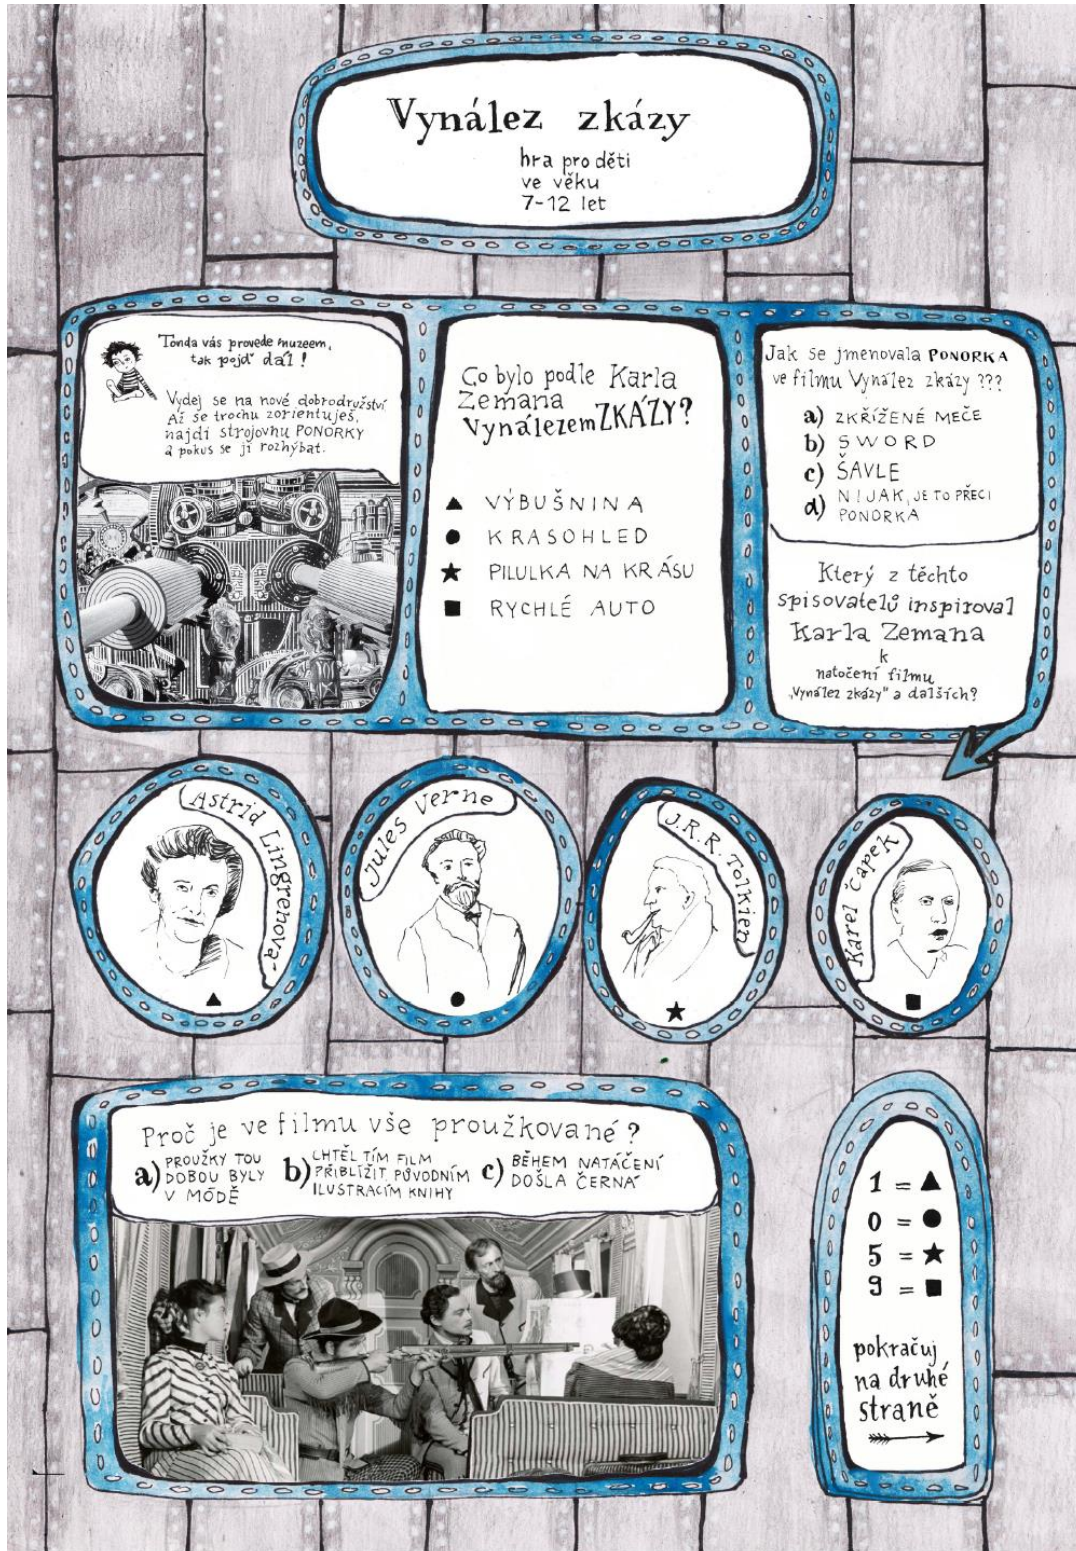 Vynález zkázy
hra pro děti
ve věku
7-12 let
Tonda vás provede muzeem,
tak pojď dál!
Vydej se na nové dobrodružství
Až se trochu zorientuješ,
najdi strojovnu PONORKY
a pokus se jí rozhýbat.
Co bylo podle Karla
Zemana
Vynálezem ZKÁZY?
▲ VÝBUŠNINA
● KRASOHLED
★ PILULKA NA KRÁSU
■ RYCHLÉ AUTO
Jak se jmenovala PONORKA
ve filmu Vynález zkázy ???
a) ZKŘÍŽENÉ MEČE
b) SWORD
c) ŠAVLE
d) NIJAK, JE TO PŘECI
PONORKA
Který z těchto
spisovatelů inspiroval
Karla Zemana
k
natočení filmu
„Vynález zkázy" a dalších?
Astrid Lingrenová
Jules Verne
J.R.R. Tolkien
Karel Čapek
▲
●
★
■
Proč je ve filmu vše proužkované?
a) PROUŽKY TOU
DOBOU BYLY
V MÓDĚ
b) CHTĚL TÍM FILM
PŘIBLÍŽIT PŮVODNÍM
ILUSTRACÍM KNIHY
c) BĚHEM NATÁČENÍ
DOŠLA ČERNÁ
1 = ▲
0 = ●
5 = ★
9 = ■
pokračuj
na druhé
straně